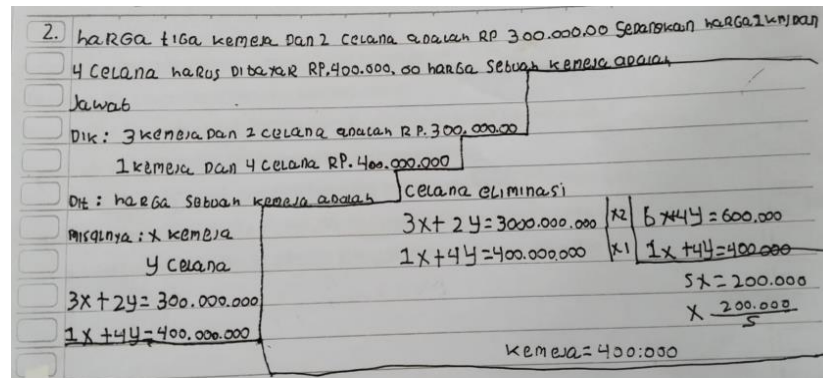 2. haRGa tiGa kemeja Dan 2 celana adalah RP 300.000,00 Sedangkan haRGa 1 kmj Dan
4 Celana haRus DibayaR RP.400.000,00 harGa Sebuah kemeja adalah
Jawab
Dik: 3 kemeja Dan 2 celana adalah RP. 300.000.00
1 kemeja Dan 4 Celana RP. 400.000.000
Dit: haRGa Sebuah kemeja adalah
Misalnya: x kemeja
y celana
3x + 2y = 300.000.000
1x + 4y = 400.000.000
celana eLiminasi
3x + 2y = 3000.000.000 |x2| 6x+4y = 600.000
1x + 4y = 400.000.000 |x1| 1x + 4y = 400.000
5x = 200.000
x 200.000
5
kemeja = 400:000